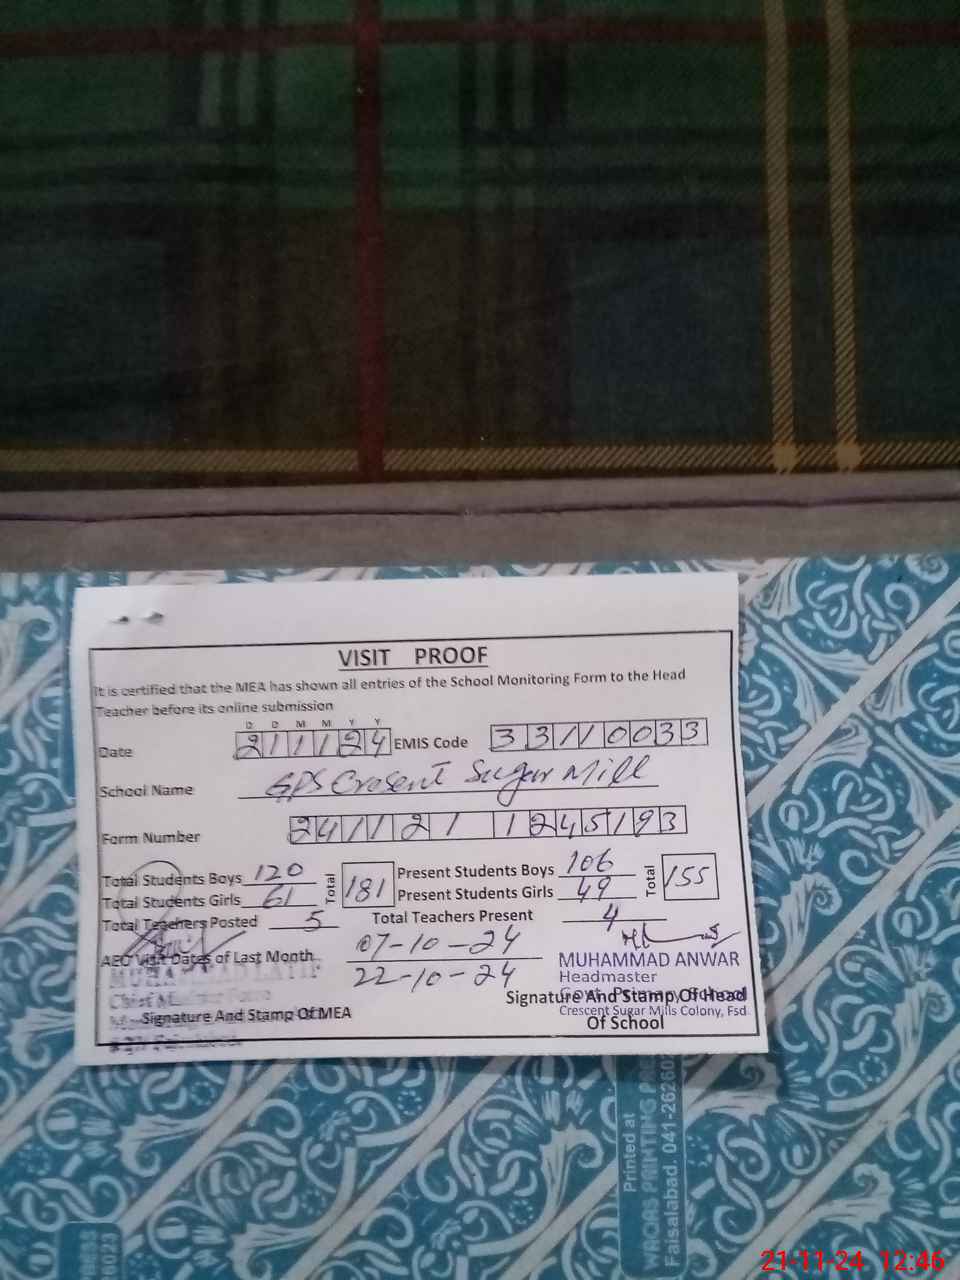 VISIT PROOF
It is certified that the MEA has shown all entries of the School Monitoring Form to the Head
Teacher before its online submission
D D M M Y Y
Date 211124 EMIS Code 33110033
School Name GPS Cresent Sugar Mill
Form Number 241121 1245193
Total Students Boys 120 Total 181 Present Students Boys 106 Total 155
Total Students Girls 61 Present Students Girls 49
Total Teachers Posted 5 Total Teachers Present 4
AEO Visit Dates of Last Month 07-10-24
22-10-24
MUHAMMAD ANWAR
Headmaster
Govt. Primary School
Crescent Sugar Mills Colony, Fsd
Signature And Stamp Of MEA
Signature And Stamp Of Head
Of School
Printed at
Faisalabad. 041-26260
21-11-24 12:46